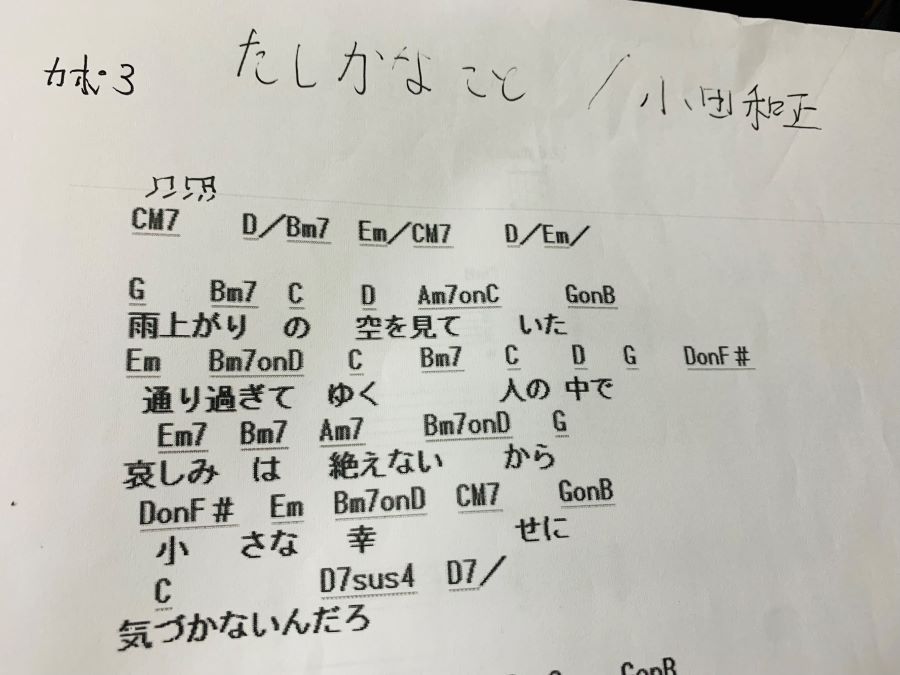 カポ・3 たしかなこと / 小田和正
CM7 D/Bm7 Em/CM7 D/Em/
G Bm7 C D Am7onC GonB
雨上がり の 空を見て いた
Em Bm7onD C Bm7 C D G DonF#
通り過ぎて ゆく 人の 中で
Em7 Bm7 Am7 Bm7onD G
哀しみ は 絶えない から
DonF# Em Bm7onD CM7 GonB
小 さな 幸 せに
C D7sus4 D7/
気づかないんだろ
GonB